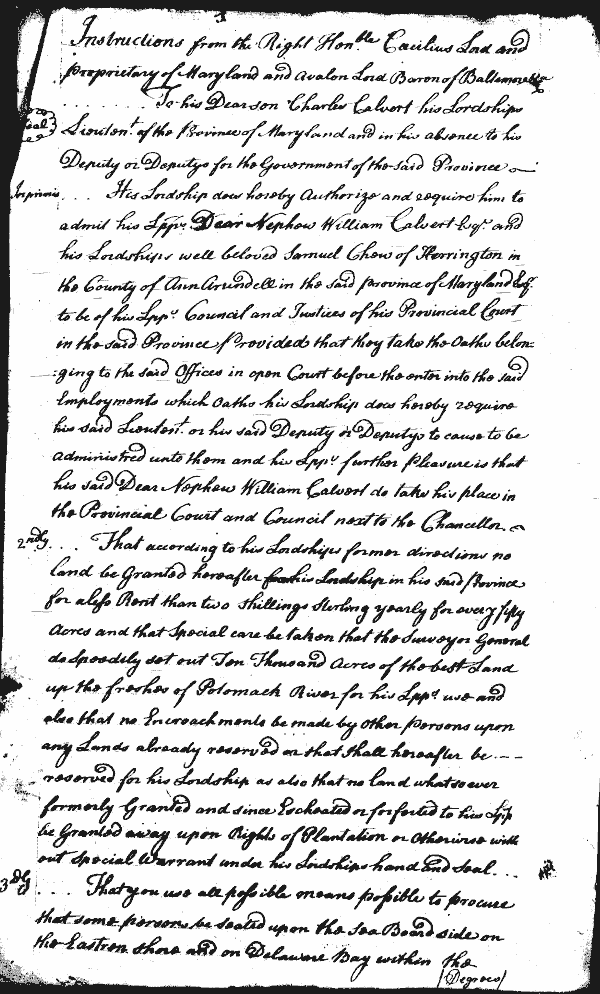 1
Instructions from the Right Honble Cæcilius Lord and
Proprietary of Maryland and Avalon Lord Baron of Baltemore &c
To his Dear son Charles Calvert his Lordships
Seal
Lieutent. of the Province of Maryland and in his absence to his
Deputy or Deputys for the Government of the said Province
Imprimis ... His Lordship does hereby Authorize and require him to
admit his Lpps. Dear Nephew William Calvert Esqr. and
his Lordships well beloved Samuel Chew of Herrington in
the County of Ann Arundell in the said province of Maryland Esqr.
to be of his Lpps. Council and Justices of his Provincial Court
in the said Province Provided that they take the Oaths belon=
=ging to the said Offices in open Court before the enter into the said
Employments which Oaths his Lordship does hereby require
his said Lieutent. or his said Deputy or Deputys to cause to be
administred unto them and his Lpps. further pleasure is that
his said Dear Nephew William Calvert do take his place in
the Provincial Court and Council next to the Chancellor.
2ndly ... That according to his Lordships former directions no
land be Granted hereafter his Lordship in his said Province
for a less Rent than two shillings sterling yearly for every fifty
Acres and that Special care be taken that the Surveyor General
do speedily set out Ten Thousand Acres of the best Land
up the freshes of Potomack River for his Lpps. use and
also that no Encroachments be made by other persons upon
any Lands already reserved or that shall hereafter be --
reserved for his Lordship as also that no land whatsoever
formerly Granted and since Escheated or forfeited to his Lpp
be Granted away upon Rights of Plantation or Otherwise with
out special Warrant under his Lordships hand and Seal...
3dly ... That you use all possible means possible to procure
that some persons be seated upon the Sea Board side on
the Eastren shore and on Delaware Bay within the
(Degrees)